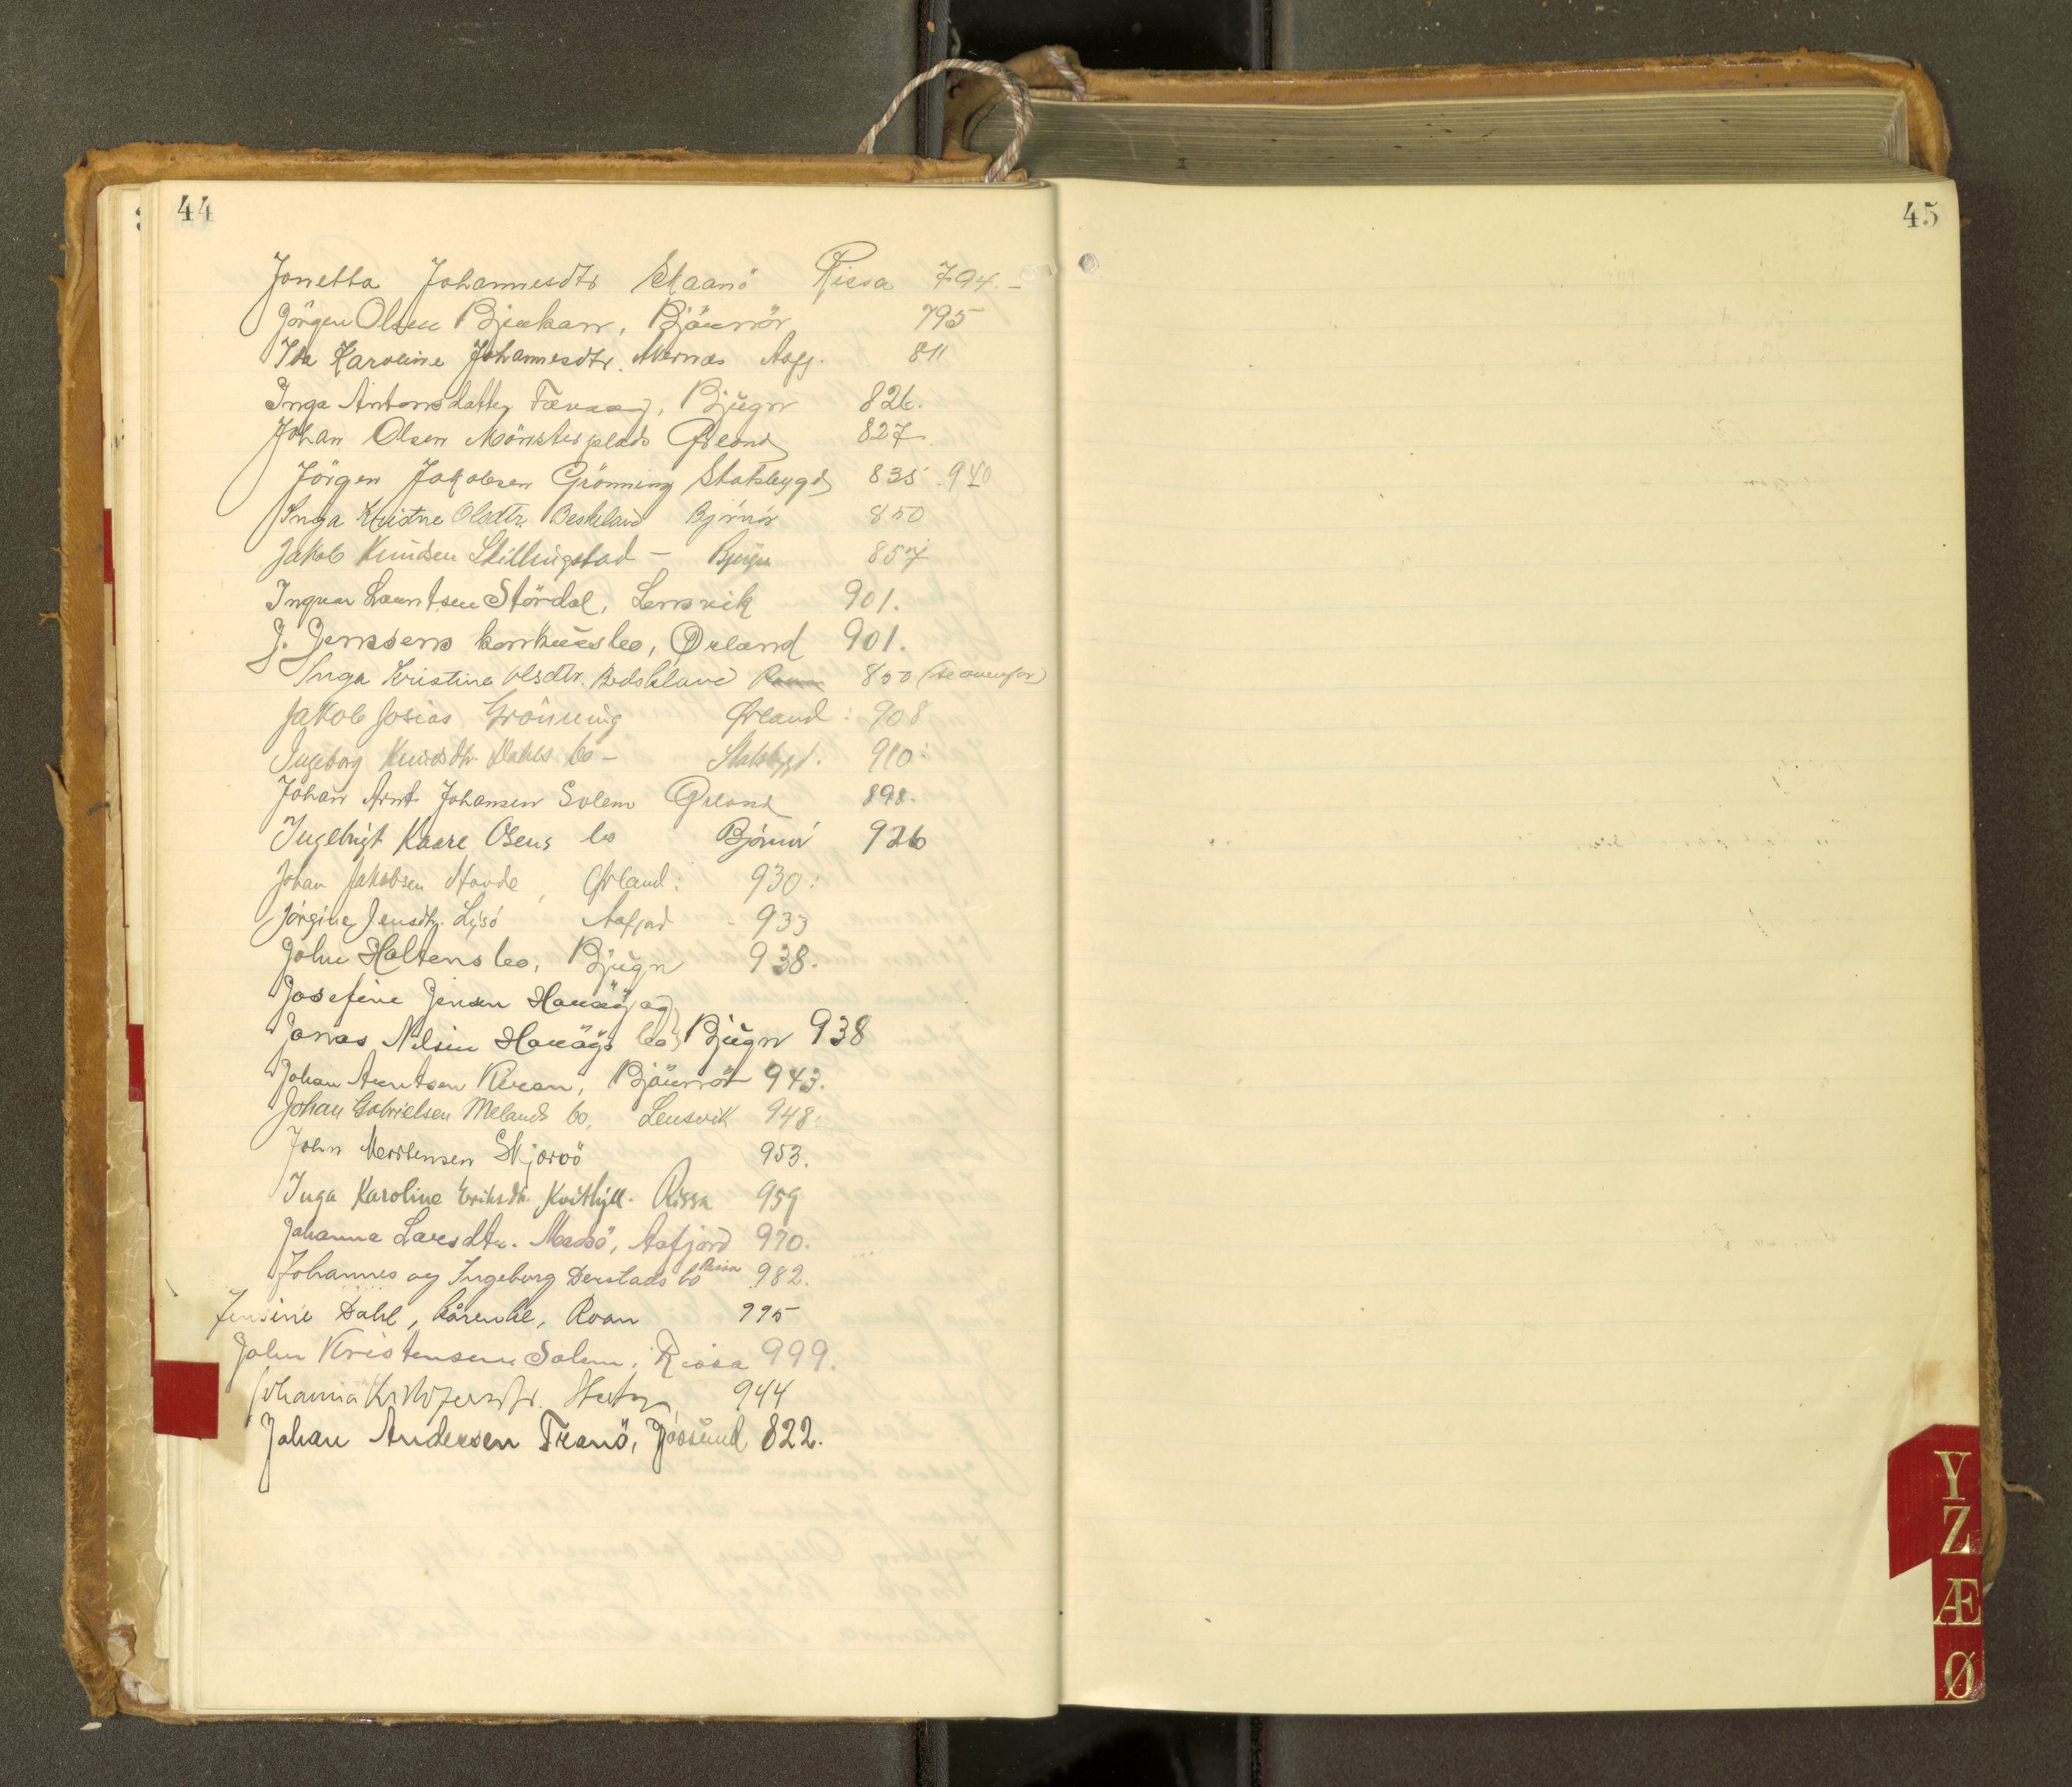 44
Jonetta Johannesdtr Skaanö Rissa 794.-
Jörgen Olsen Bjørkan, Björnör 795
Ida Karoline Johannesdtr. Mørnæs Aafj. 811
Inga Antonsdatter, Bjügn 826.
Johan Olsen Mönsterplads Ørland 827.
Jörgen Jakobsen Grönning Statsbygd 835. 940
Inga Kristne Olsdtr. Beskeland Björnör 850
Jakob Knüdsen Skillingstad - Bjugn 857
Ingvar Lorntsen Stördal, Lensvik 901.
J. Jenssens konkürsbo, Ørland 901.
Inga Kristine Olsdtr. 850 (se ovenfor)
Jakob Josias Grönning Ørland: 908
Ingeborg Knudsdtr. Dahls bo - Statsbygd. 910:
Johan Arnt Johansen Solem Ørland 898.
Ingebrigt Kaare Osens bo Björnör 926
Johan Jakobsen Hovde, Ørland: 930:
Jörgine Jensdtr. Lysö Aafjord - 933
John Holtens bo, Bjügn 938.
Josefine Jensen og
Jonas Nilsen bo, Bjügn 938
Johan Arntsen Kiran, Björnör 943.
Johan Gabrielsen Melands bo, Lensvik 948:
John Mortensen Skjervö 953.
Inga Karoline Eriksdtr. Kvithyll. Rissa 959
Johanna Larsdtr. Madsö, Aafjord 970.
Johannes og Ingeborg Derstads bo Rissa 982.
Jensine Dahl, Roan 995
John Kristensen Solem, Rissa 999.
Johanna 944
Johan Andersen Tranö, Jössund 822.
45
Y
Z
Æ
Ø